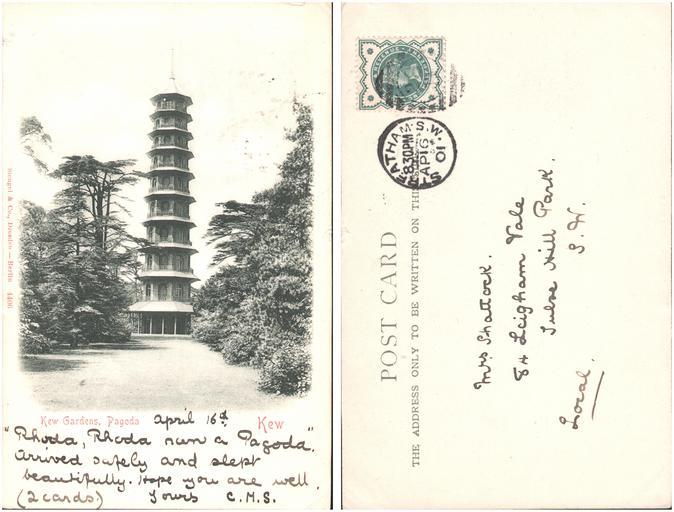 Stengel & Co., Dresden — Berlin 4406
Kew Gardens, Pagoda
April 16th
Kew
"Rhoda, Rhoda run a Pagoda".
Arrived safely and slept
beautifully. Hope you are well.
(2 cards.) Yours C.M.S.
8.30PM
AP16
01
S.W.
POST CARD
THE ADDRESS ONLY TO BE WRITTEN ON THIS
Mrs Shattock.
84 Leigham Vale
Tulse Hill Park.
S.W.
Local.